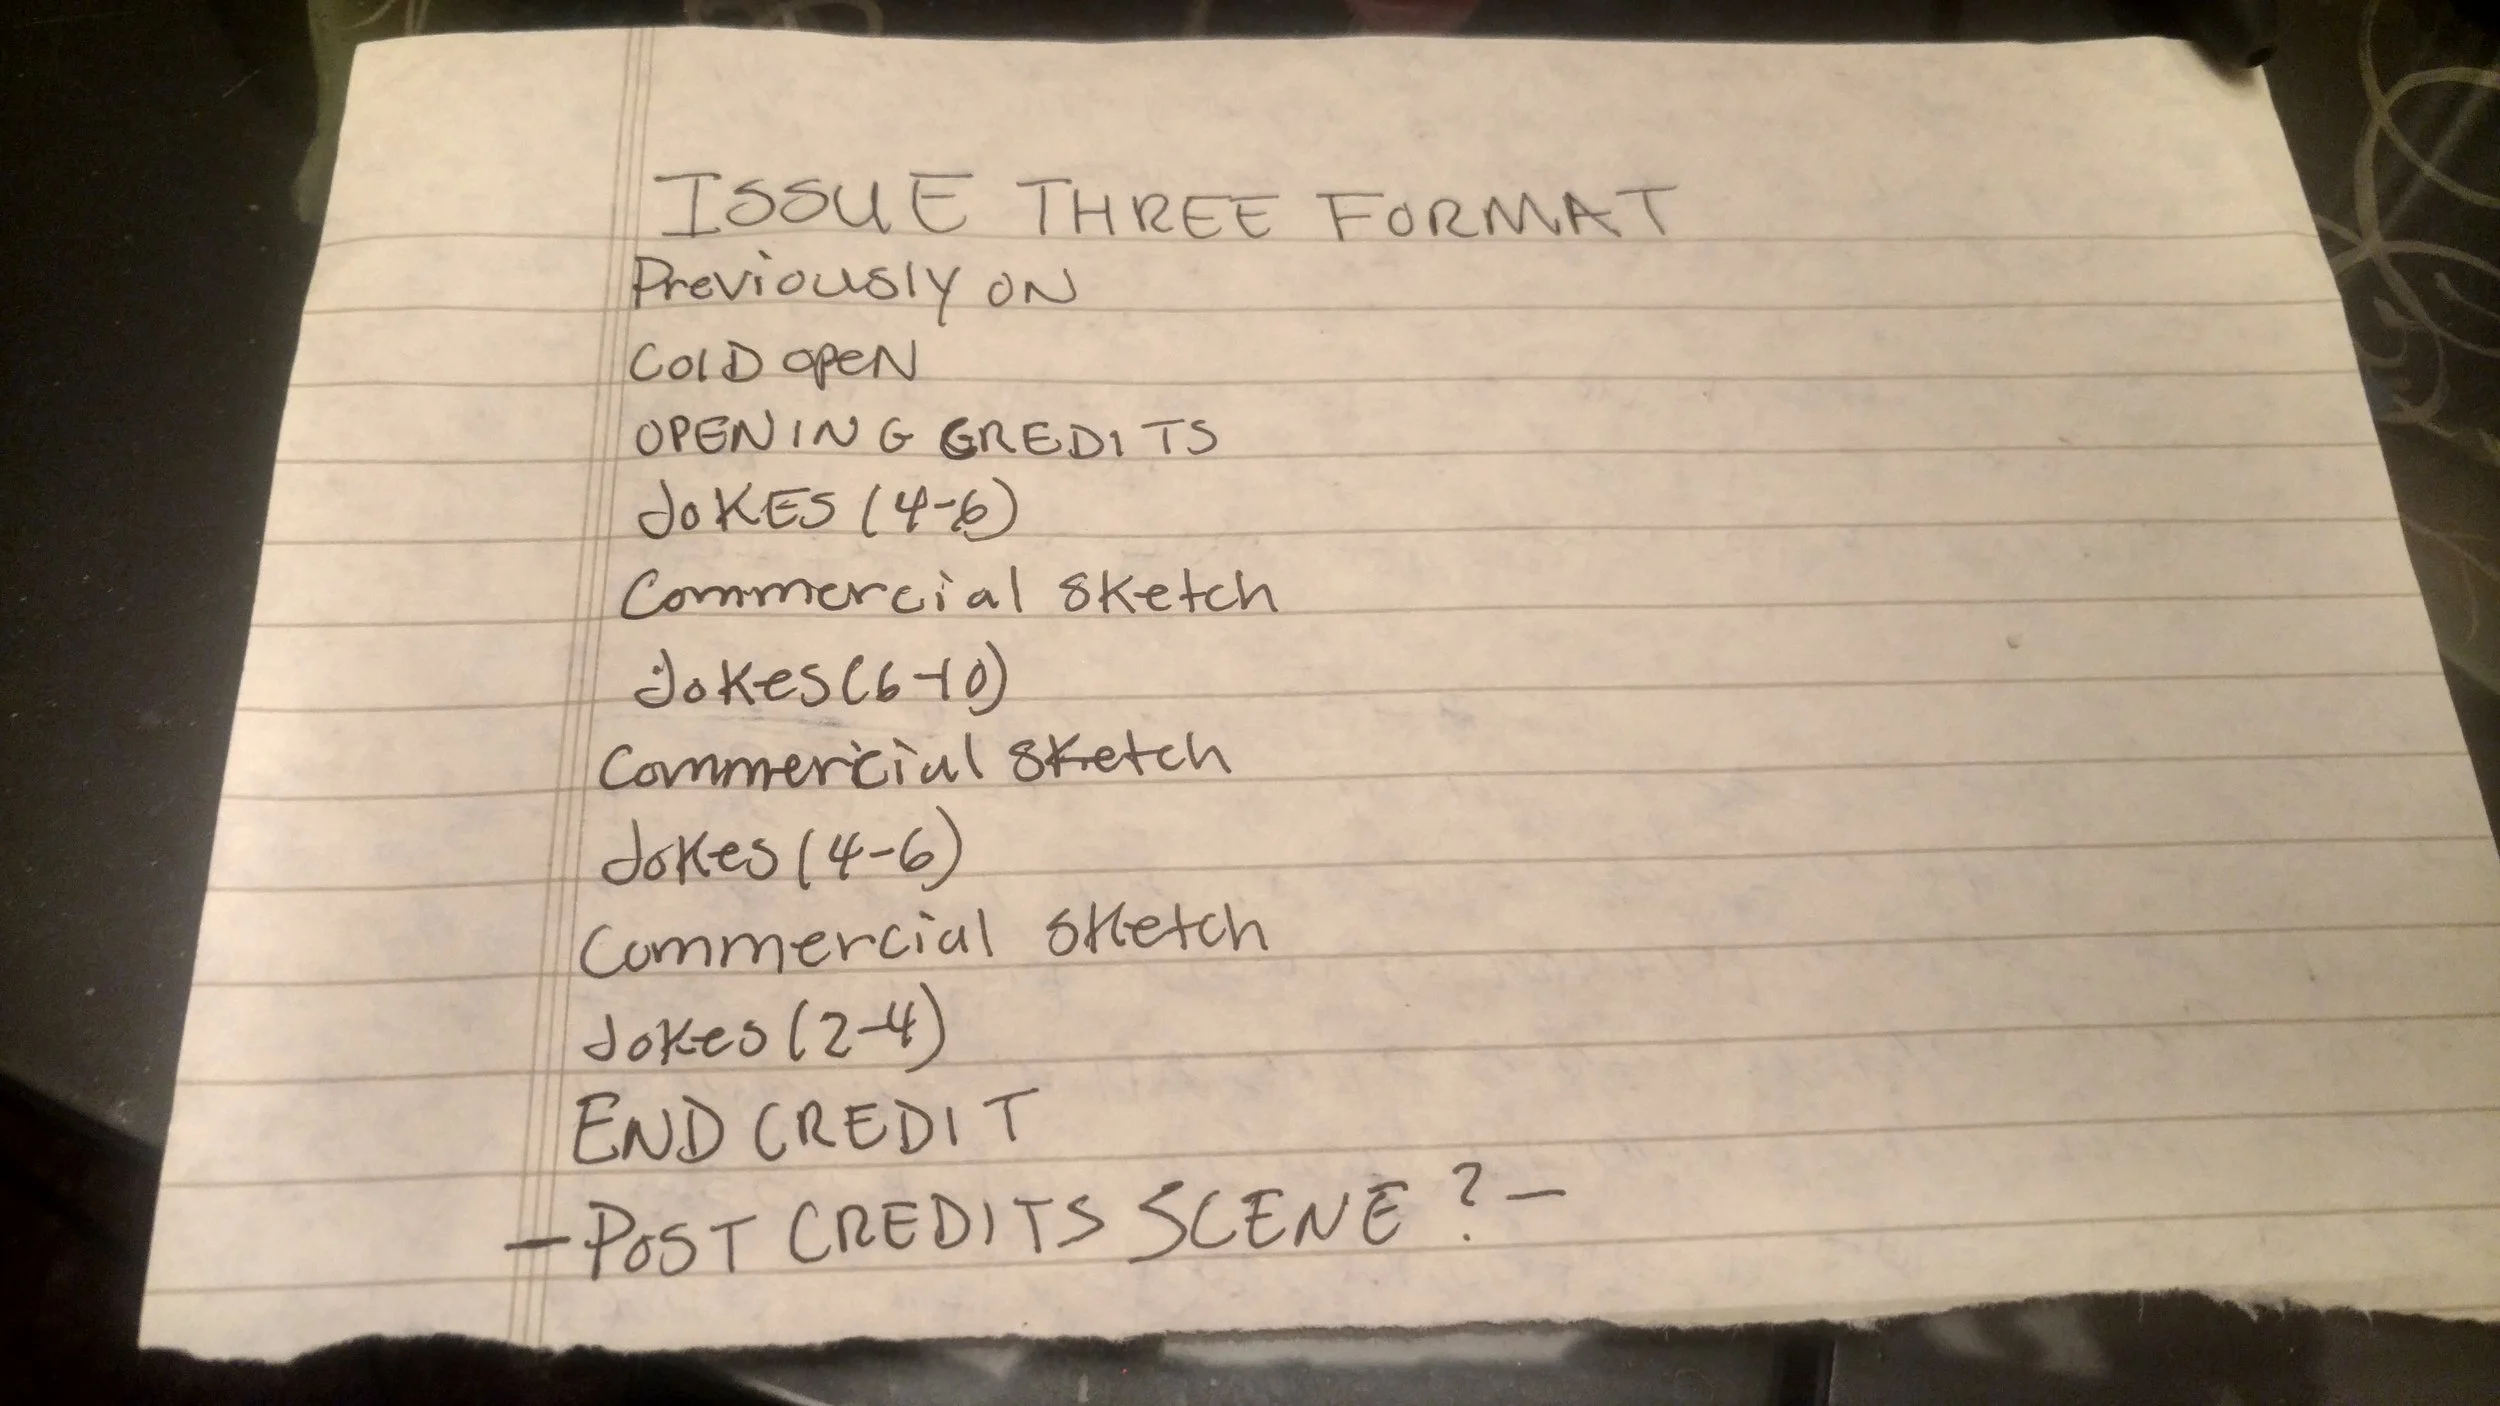 ISSUE THREE FORMAT
Previously ON
COLD OPEN
OPENING CREDITS
JOKES (4-6)
Commercial Sketch
Jokes (6-10)
Commericial Sketch
Jokes (4-6)
Commercial Sketch
Jokes (2-4)
END CREDIT
- POST CREDITS SCENE? -